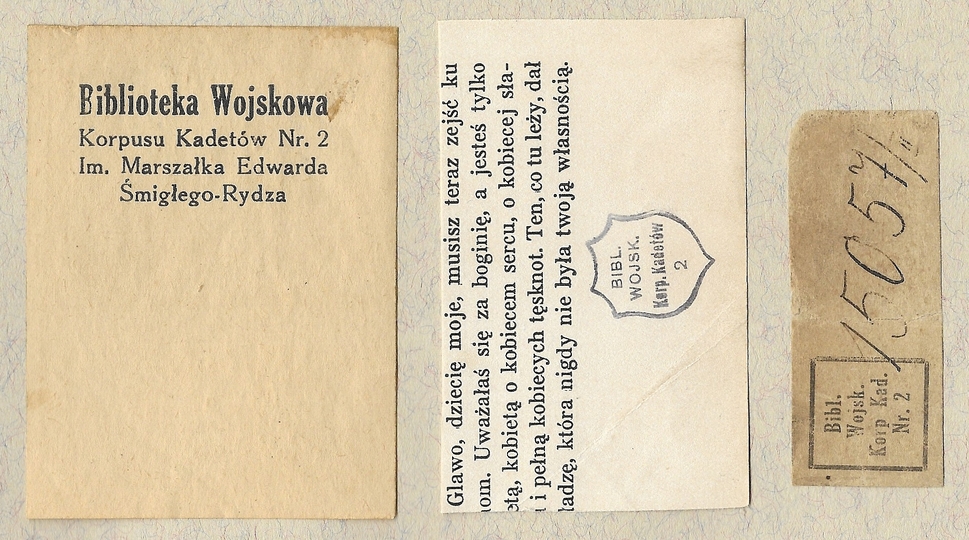 Biblioteka Wojskowa
Korpusu Kadetów Nr. 2
Im. Marszałka Edwarda
Śmigłego-Rydza
Glawo, dziecię moje, musisz teraz zejść ku
Uważałaś się za boginię, a jesteś tylko
kobietą o kobiecem sercu, o kobiecej sła-
i pełną kobiecych tęsknot. Ten, co tu leży, dał
która nigdy nie była twoją własnością.
BIBL.
WOJSK.
Korp. Kadetów
2
15057/II
Bibl.
Wojsk.
Korp Kad.
Nr. 2